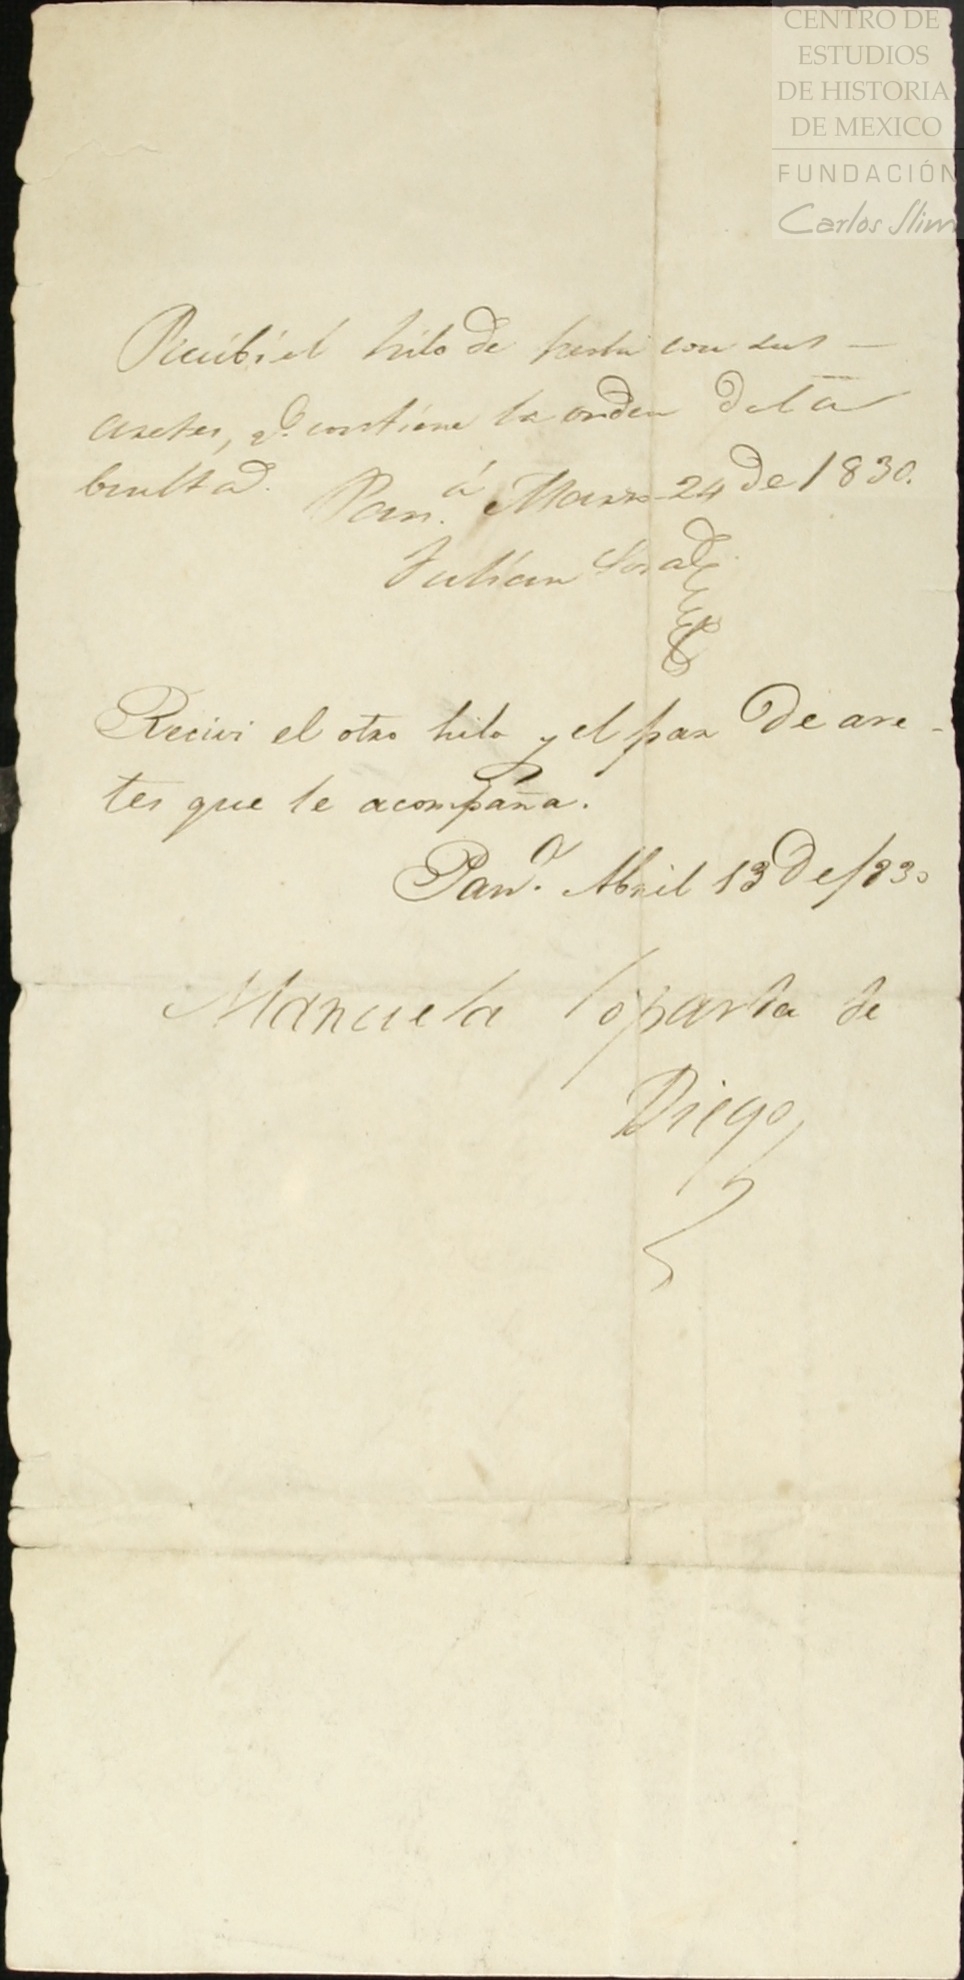 CENTRO DE
ESTUDIOS
DE HISTORIA
DE MEXICO
FUNDACIÓN
Carlos Slim
Recibi el hilo de perla con sus
aretes, q.e contiene la orden de la
buelta.
Pan.á Marzo 24 de 1830.
Julian Sosa
Recivi el otro hilo y el par de are-
tes que le acompaña.
Pan.a Abril 13 de 1830
Manuela de
Diego